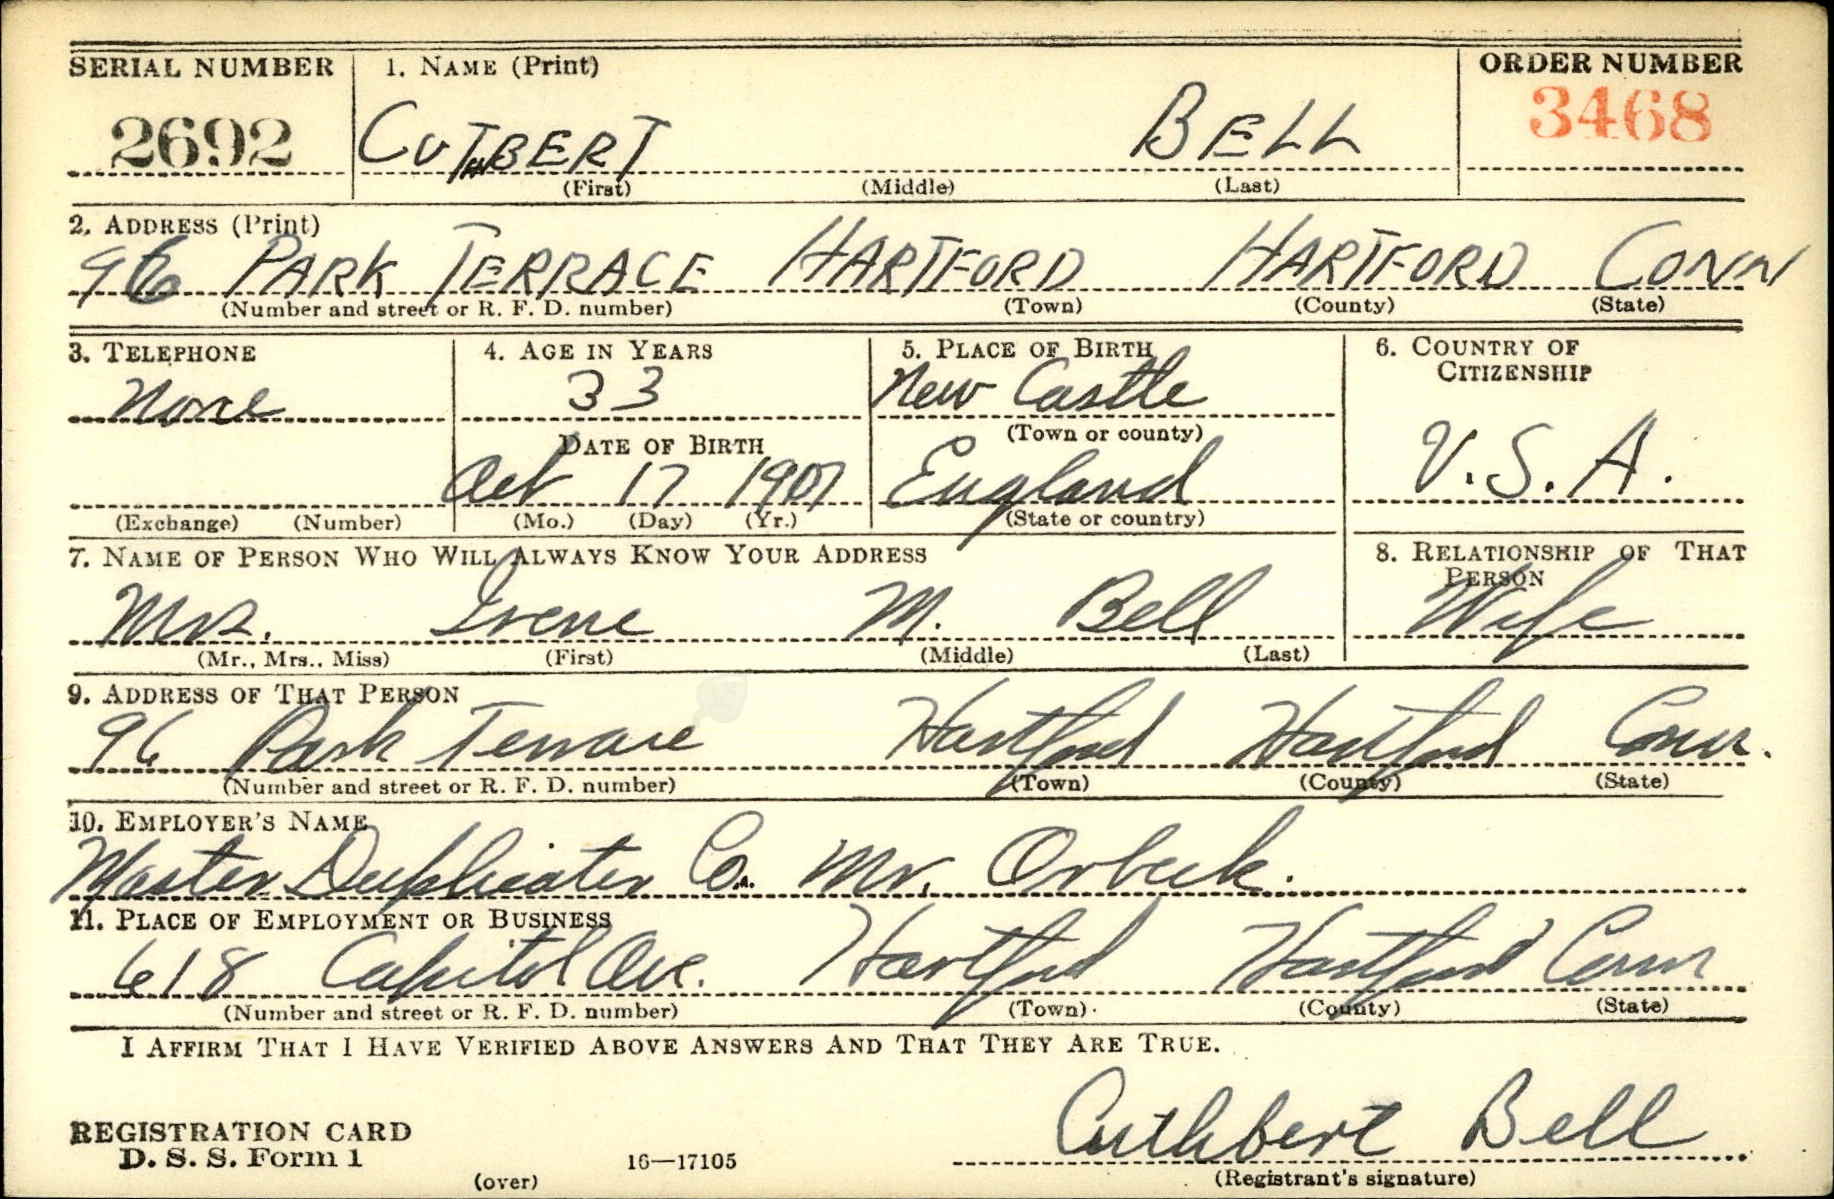 SERIAL NUMBER 1. NAME (Print) ORDER NUMBER
2692 CUTHBERT BELL 3468
(First) (Middle) (Last)
2. ADDRESS (Print)
96 PARK TERRACE HARTFORD HARTFORD CONN
(Number and street or R. F. D. number) (Town) (County) (State)
3. TELEPHONE 4. AGE IN YEARS 5. PLACE OF BIRTH 6. COUNTRY OF
CITIZENSHIP
None 33 New Castle
(Town or county)
DATE OF BIRTH
Oct 17 1907 England U.S.A.
(Exchange) (Number) (Mo.) (Day) (Yr.) (State or country)
7. NAME OF PERSON WHO WILL ALWAYS KNOW YOUR ADDRESS 8. RELATIONSHIP OF THAT
PERSON
Mrs. Irene M. Bell Wife
(Mr., Mrs., Miss) (First) (Middle) (Last)
9. ADDRESS OF THAT PERSON
96 Park Terrace Hartford Hartford Conn.
(Number and street or R. F. D. number) (Town) (County) (State)
10. EMPLOYER'S NAME
Master Duplicater Co. Mr. Orbeck.
11. PLACE OF EMPLOYMENT OR BUSINESS
618 Capitol Ave. Hartford Hartford Conn
(Number and street or R. F. D. number) (Town) (County) (State)
I AFFIRM THAT I HAVE VERIFIED ABOVE ANSWERS AND THAT THEY ARE TRUE.
Cuthbert Bell
REGISTRATION CARD
D. S. S. Form 1 16—17105
(over) (Registrant's signature)